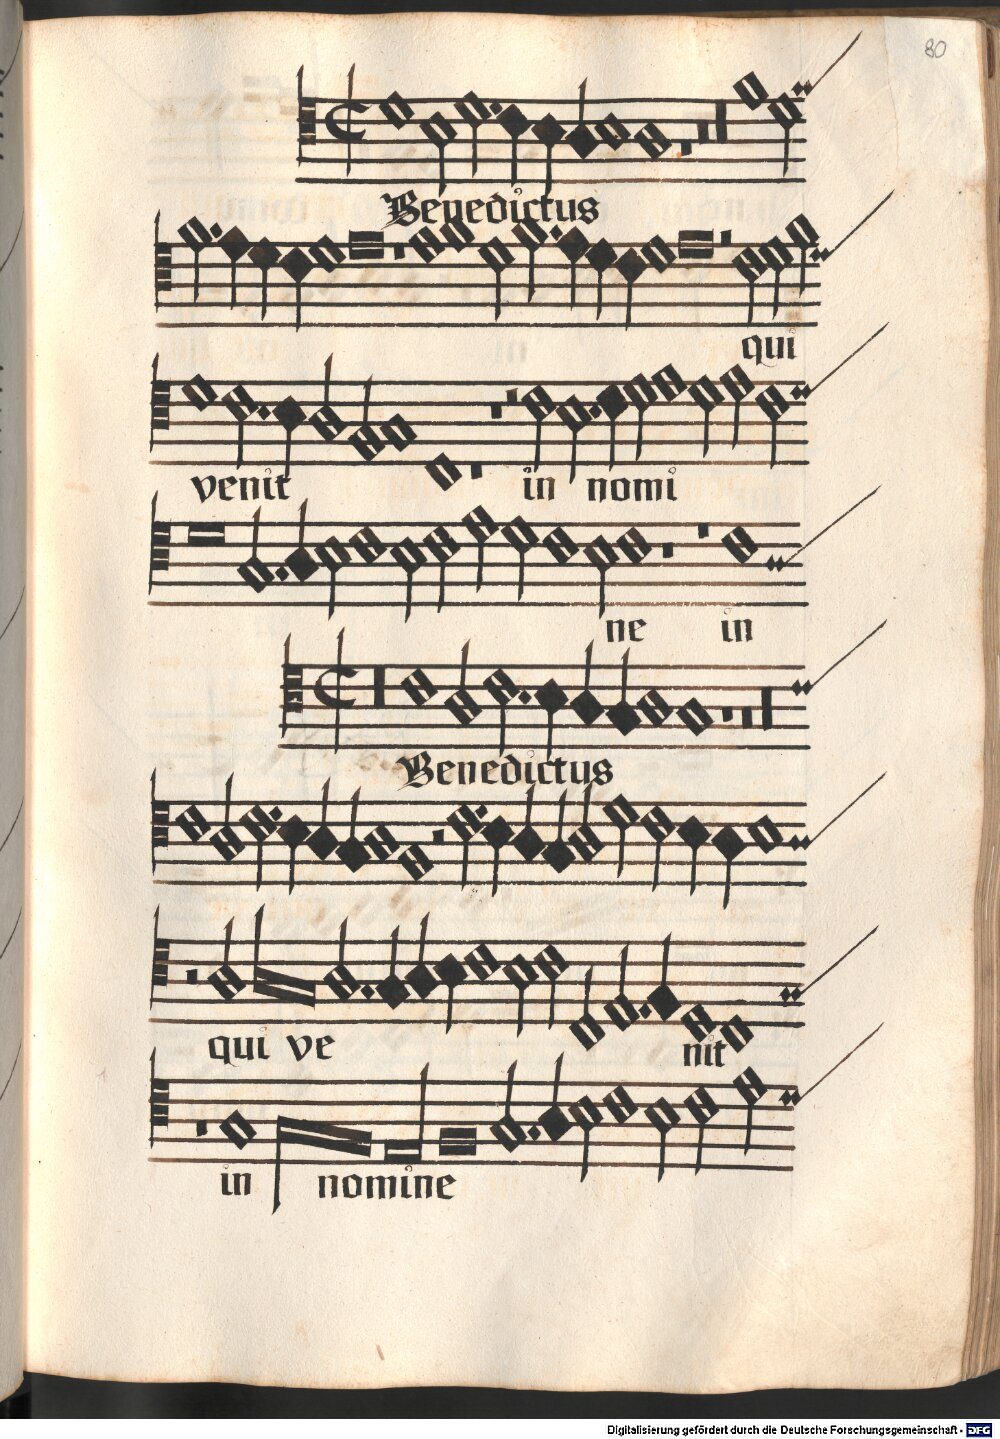 80
Benedictus
qui
venit in nomi
ne in
Benedictus
qui ve nit
in nomine
Digitalisierung gefördert durch die Deutsche Forschungsgemeinschaft - DFG